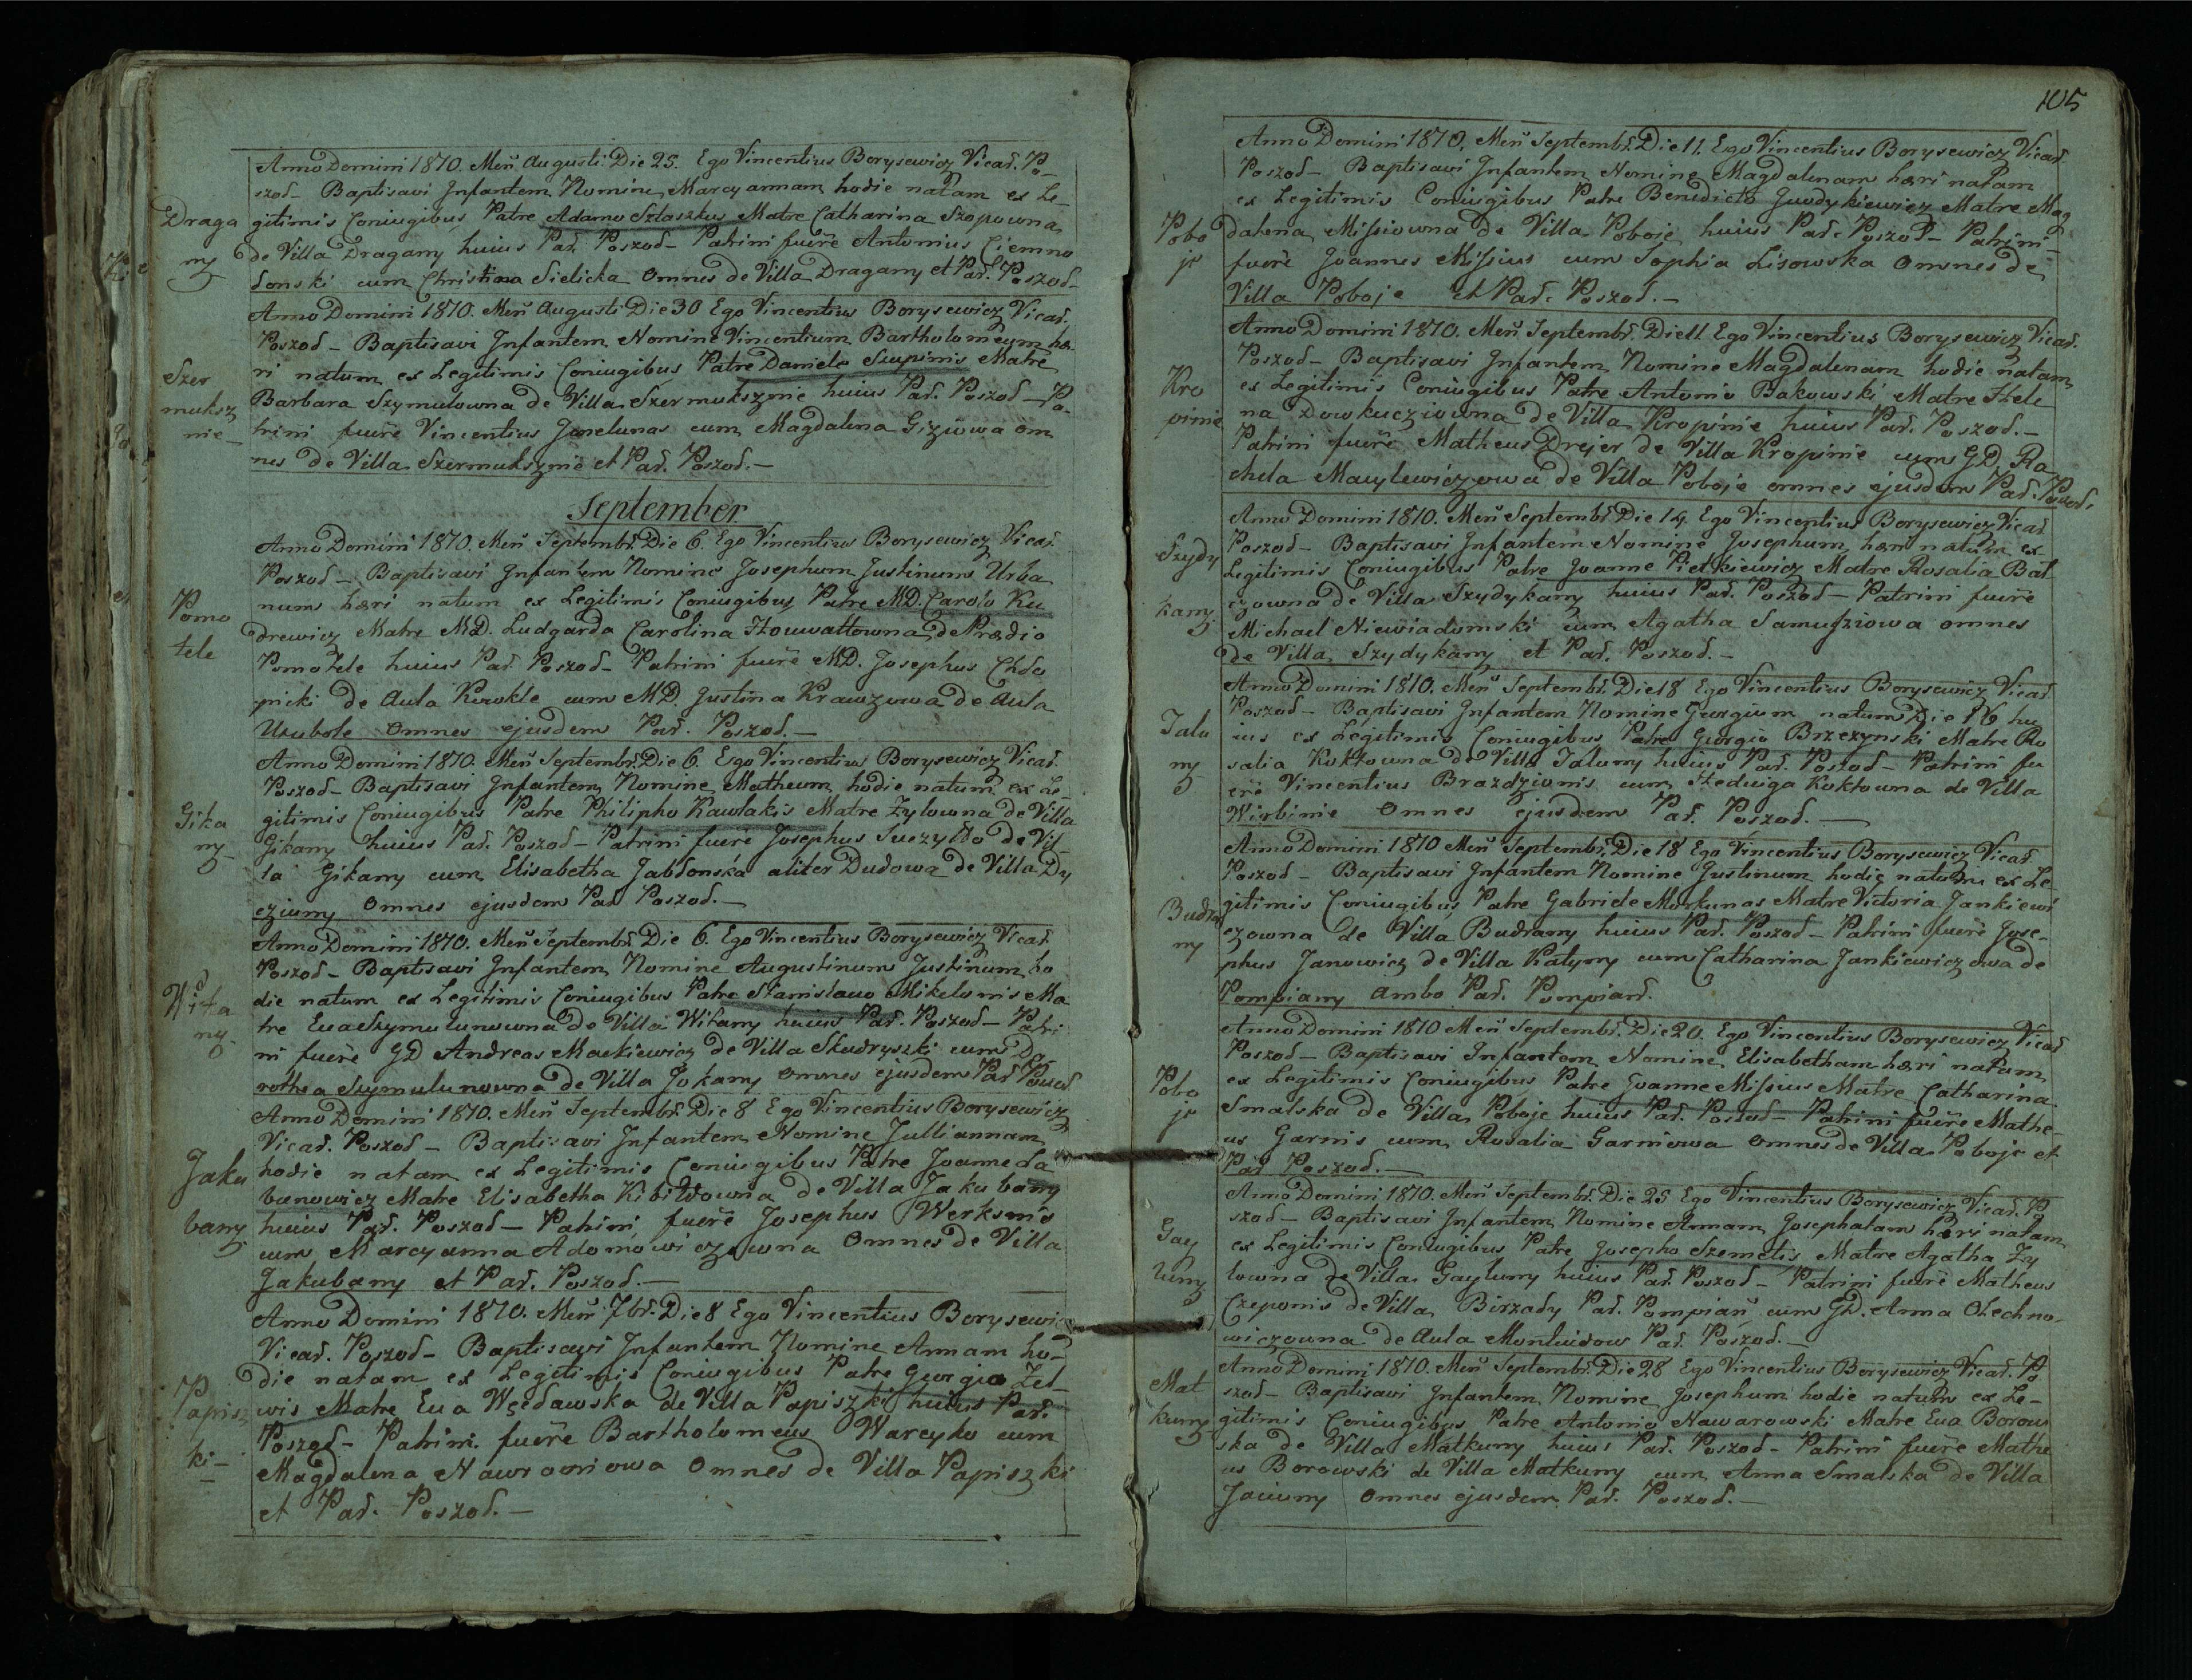 Anno Domini 1810. Meñ Augusti Die 25. Ego Vincentius Borysewicz Vicar. Po-
szod- Baptisavi Infantem Nomine Marcyannam hodie natam ex Le-
Draga gitimis Coniugibus Patre Adamo Szlaszkus Matre Catharina Szopowna
ny de Villa Dragany huius Par. Poszod- Patrini fuere Antonius Ciemno
łonski cum Christina Sielicka Omnes de Villa Dragany et Par. Poszod-
Anno Domini 1810. Meñ Augusti Die 30 Ego Vincentius Borysewicz Vicar.
Poszod- Baptisavi Infantem Nomine Vincentium Bartholomeum hæ-
Szer ri natum ex Legitimis Coniugibus Patre Daniele Supinis Matre
muksz Barbara Szymulowna de Villa Szermukszznie huius Par. Poszod- Pa-
nie- trini fuere Vincentius Janelunas cum Magdalena Giziowa om
nes de Villa Szermukszznie et Par. Poszod.-
September
Anno Domini 1810. Meñ Septembr. Die 6. Ego Vincentius Borysewicz Vicar.
Poszod- Baptisavi Infantem Nomine Josephum Justinum Urba
Pomo num hæri natum ex Legitimis Coniugibus Patre MD. Carolo Ku
tele drewicz Matre MD. Ludgarda Carolina Houwaltowna de Prædio
Pomotele huius Par. Poszod- Patrini fuere MD. Josephus Chło
picki de Aula Kirokle cum MD. Justina Krawzowa de Aula
Uzubole Omnes ejusdem Par. Poszod.-
Anno Domini 1810. Meñ Septembr. Die 6. Ego Vincentius Borysewicz Vicar.
Poszod- Baptisavi Infantem Nomine Matheum hodie natum ex Le-
Gika gitimis Coniugibus Patre Philipho Kawlakis Matre Zylowna de Villa
ny Gikany huius Par. Poszod- Patrini fuere Josephus Suczyłło de Vil-
la Gikany cum Elisabetha Jabłonska aliter Dudowa de Villa Dy
cziuny Omnes ejusdem Par Poszod.-
Anno Domini 1810. Meñ Septembr. Die 6. Ego Vincentius Borysewicz Vicar
Poszod- Baptisavi Infantem Nomine Augustinum Justinum ho
Wita die natum ex Legitimis Coniugibus Patre Stanislauo Mikelonis Ma
ny. tre Eua Szymulunowna de Villa Witany huius Par. Poszod- Patri
ni fuere GD Andreas Mackiewicz de Villa Skudryszki cum D
rothea Szymulunowna de Villa Jokany Omnes ejusdem Par Poszod
Anno Domini 1810. Meñ Septembr. Die 8 Ego Vincentius Borysewicz
Vicar. Poszod- Baptisavi Infantem Nomine Julliannam
Jaku hodie natam ex Legitimis Coniugibus Patre Joanne La
banowicz Matre Elisabetha Kibiłdowna de Villa Jakubany
bany huius Par. Poszod- Patrini fuere Josephus Werksnis
cum Marcyanna Adomowiczowna Omnes de Villa
Jakubany et Par. Poszod.-
Anno Domini 1810. Meñ 7br. Die 8 Ego Vincentius Borysewi
Vicar. Poszod- Baptisavi Infantem Nomine Annam ho-
die natam ex Legitimis Coniugibus Patre Georgio Zel-
Papisz wis Matre Eua Węcławska de Villa Papiszki huius Par.
ki- Poszod- Patrini fuere Bartholomeus Warcyko cum
Magdalena Nawroniowa Omnes de Villa Papiszki
et Par. Poszod.-
105
Anno Domini 1810. Meñ Septembr. Die 11 Ego Vincentius Borysewicz Vicar.
Poszod- Baptisavi Infantem Nomine Magdalenam hæri natam
ex Legitimis Coniugibus Patre Benedicto Gwdykiewicz Matre Mag
Pobo dalena Missiowna de Villa Poboje huius Par. Poszod- Patrini
je fuere Joannes Missius cum Sophia Lisowska Omnes de
Villa Poboje et Par. Poszod.-
Anno Domini 1810. Meñ Septembr. Die 11. Ego Vincentius Borysewicz Vicar.
Poszod- Baptisavi Infantem Nomine Magdalenam hodie natam
Kro ex Legitimis Coniugibus Patre Antonio Bakowski Matre Hele
pinie na Dowkucziowna de Villa Kropinie huius Par. Poszod.-
Patrini fuere Matheus Drejer de Villa Kropinie cum GD Ra
chela Macylewiczowa de Villa Poboje omnes ejusdem Par. Poszod.
Anno Domini 1810. Meñ Septembr. Die 14. Ego Vincentius Borysewicz Vicar
Szydy Poszod- Baptisavi Infantem Nomine Josephum hæri natum ex
Legitimis Coniugibus Patre Joanne Pietkiewicz Matre Rosalia Bał
kany czowna de Villa Szydykany huius Par. Poszod- Patrini fuere
Michael Niewiadomski cum Agatha Samuszziowa omnes
de Villa Szydykany et Par. Poszod.-
Anno Domini 1810. Meñ Septembr. Die 18 Ego Vincentius Borysewicz Vicar
Poszod- Baptisavi Infantem Nomine Georgium natum Die 16 hu
Jalu ius ex Legitimis Coniugibus Patre Giorgio Brzezynski Matre Ro
ny salia Koktowna de Villa Jaluny huius Par. Poszod- Patrini fu
ere Vincentius Brazdzionis cum Hedwiga Koktowna de Villa
Wirbinie Omnes ejusdem Par. Poszod.-
Anno Domini 1810 Meñ Septembr. Die 18 Ego Vincentius Borysewicz Vicar
Poszod- Baptisavi Infantem Nomine Justinum hodie natum ex Le-
Budra gitimis Coniugibus Patre Gabriele Morkunas Matre Victoria Jankiewi
ny czowna de Villa Budrany huius Par. Poszod- Patrini fuere Jose-
phus Janowicz de Villa Katyny cum Catharina Jankiewiczowa de
Pompiany Ambo Par. Pompian.
Anno Domini 1810 Meñ Septembr. Die 20. Ego Vincentius Borysewicz Vicar
Poszod- Baptisavi Infantem Nomine Elisabetham hæri natam
Pobo ex Legitimis Coniugibus Patre Joanne Missius Matre Catharina
je Smalska de Villa Poboje huius Par. Poszod- Patrini fuere Mathe-
us Garnis cum Rosalia Garniowa Omnes de Villa Poboje et
Par Poszod.-
Anno Domini 1810. Meñ Septembr. Die 25 Ego Vincentius Borysewicz Vicar. Po
szod- Baptisavi Infantem Nomine Annam Josephatam hæri natam
Gay ex Legitimis Coniugibus Patre Josepho Szemetis Matre Agatha Zy
luny lowna de Villa Gayluny huius Par. Poszod- Patrini fuere Matheus
Czeponis de Villa Birzady Par. Pompiañ cum GD. Anna Olechno-
wiczowna de Aula Montwidow Par. Poszod.-
Anno Domini 1810. Meñ Septembr. Die 28 Ego Vincentius Borysewicz Vicar. Po
Mat szod- Baptisavi Infantem Nomine Josephum hodie natum ex Le-
kuny gitimis Coniugibus Patre Antonio Nawarowski Matre Eua Borow
ska de Villa Matkuny huius Par. Poszod- Patrini fuere Mathe
us Borowski de Villa Matkuny cum Anna Smalska de Villa
Jaciuny Omnes ejusdem Par. Poszod.-